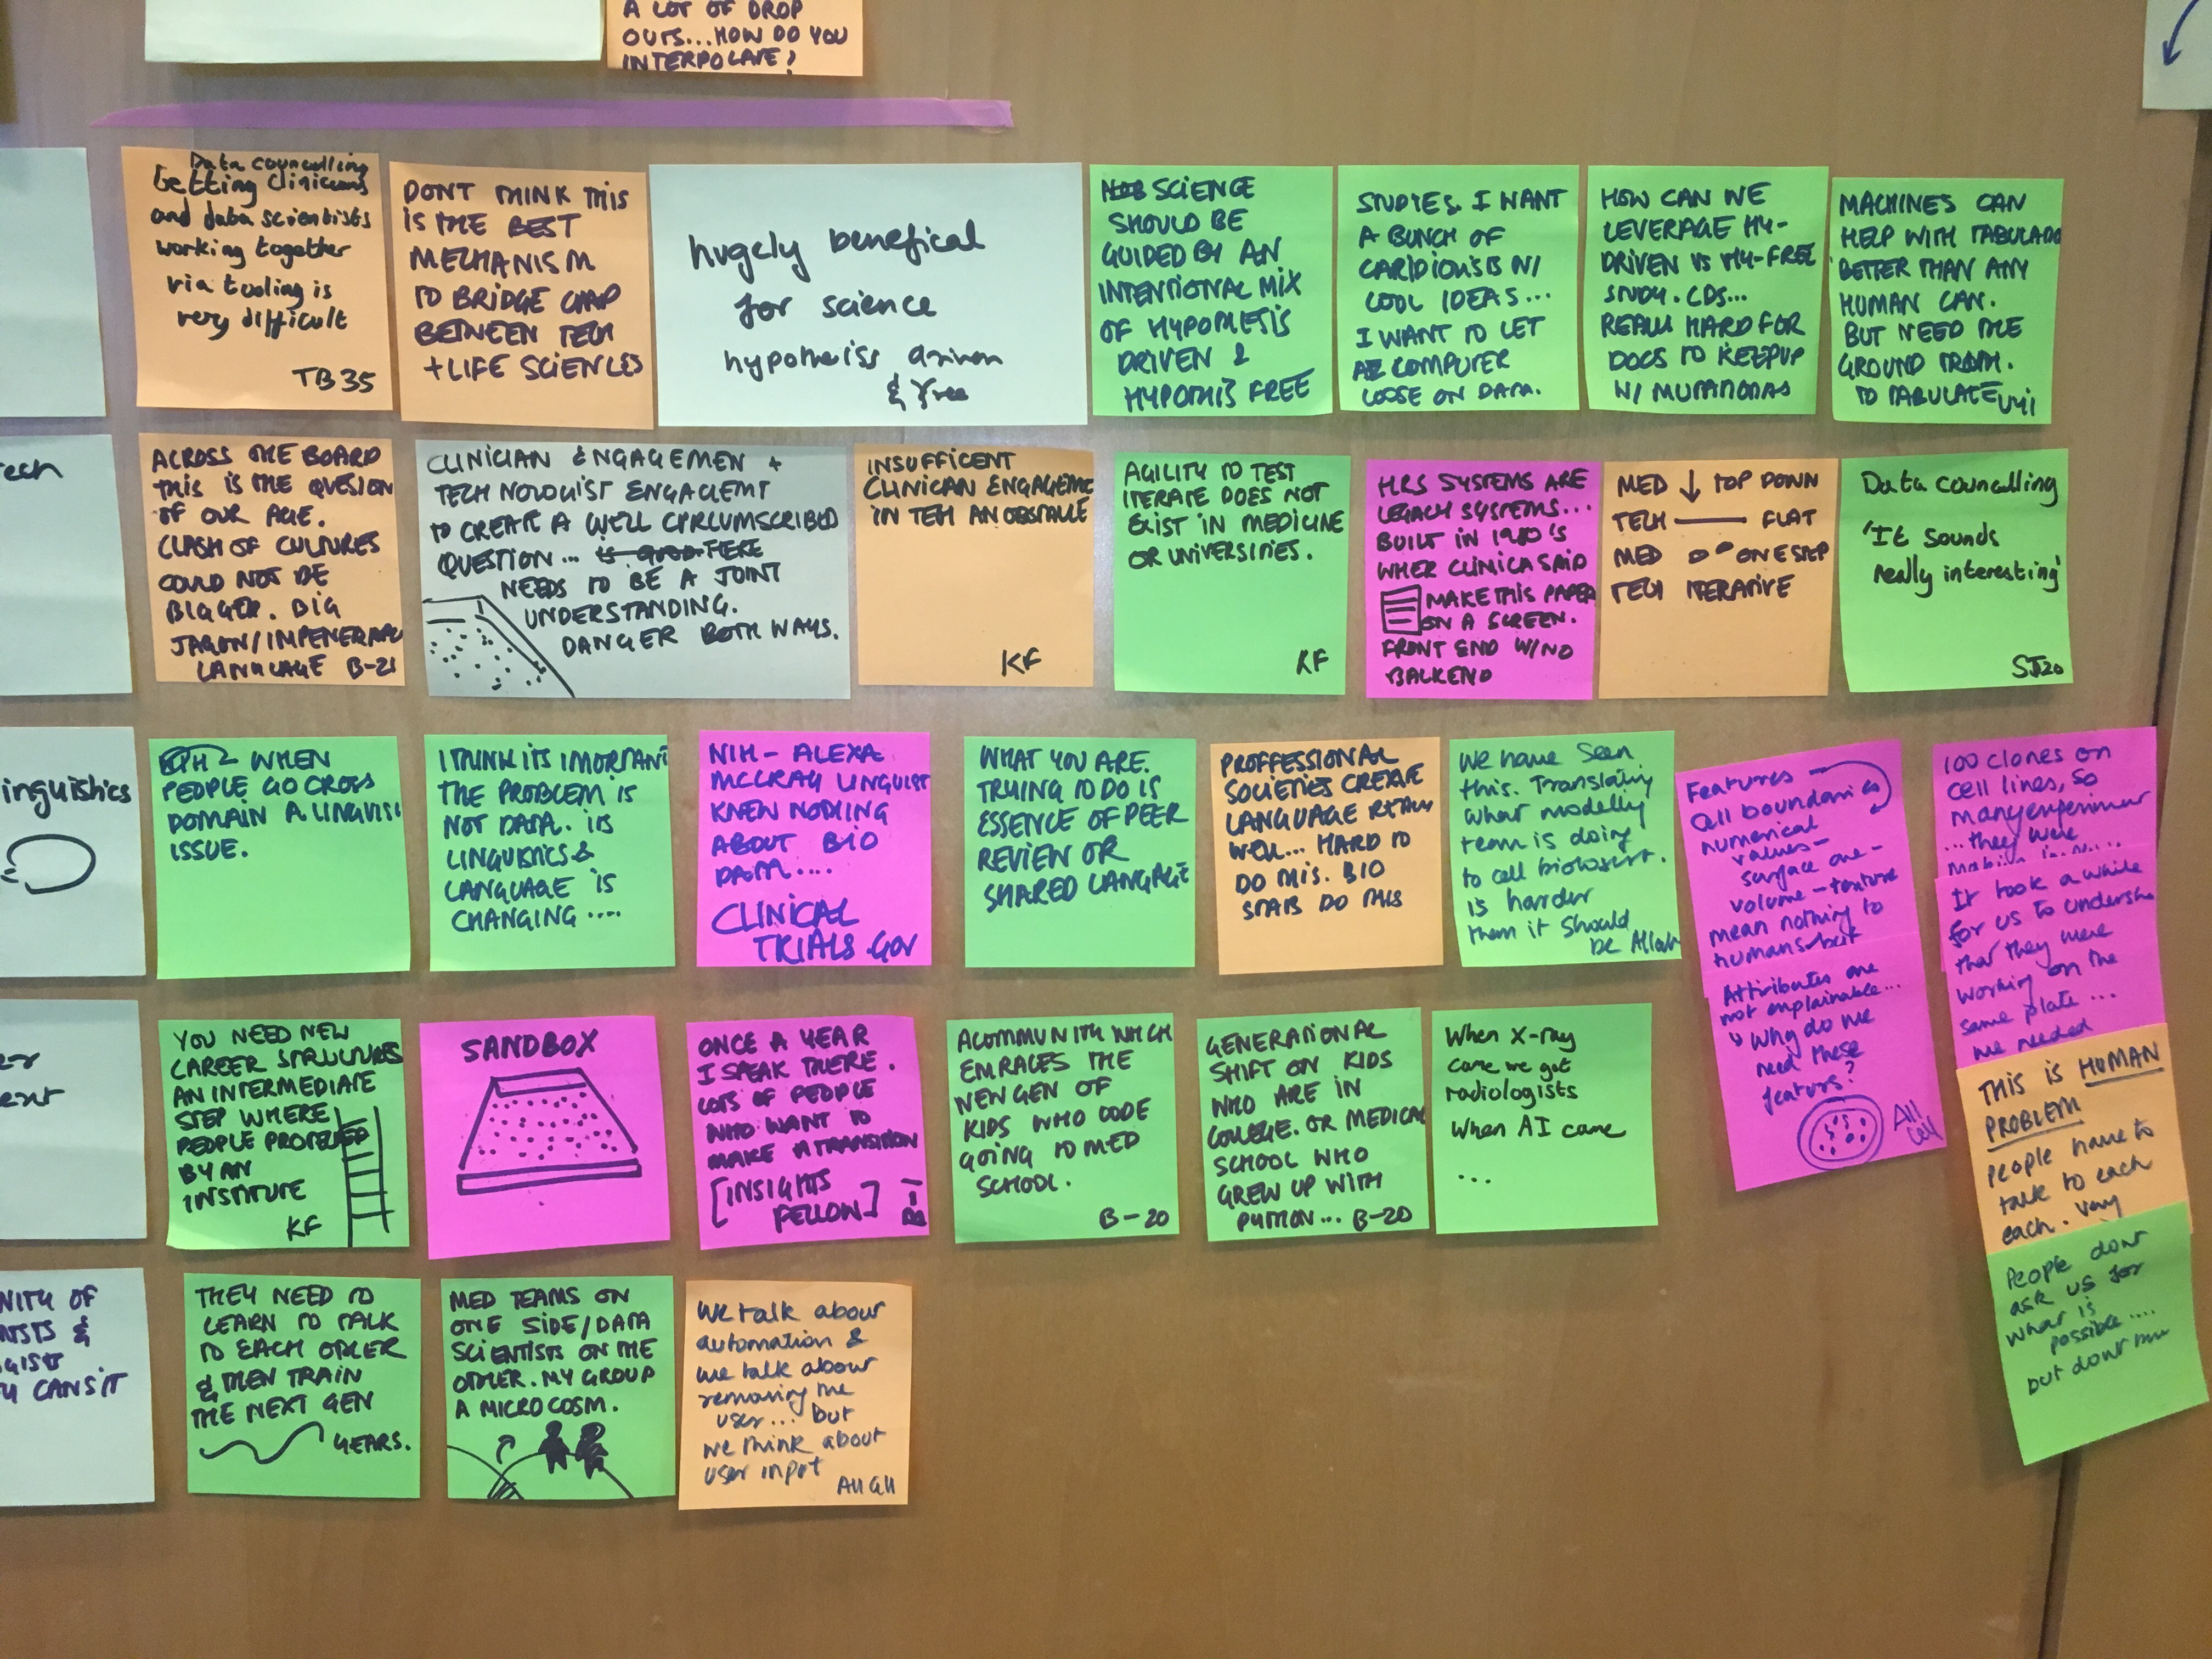 A LOT OF DROP
OUTS...HOW DO YOU
INTERPOLATE?
Data councelling
Getting clinicians
and data scientists
working together
via tooling is
very difficult
TB35
DONT THINK THIS
IS THE BEST
MECHANISM
TO BRIDGE GAP
BETWEEN TECH
+ LIFE SCIENCES
hugely benefical
for science
hypotheiss driven
& free
SCIENCE
SHOULD BE
GUIDED BY AN
INTENTIONAL MIX
OF HYPOTHETIS
DRIVEN &
HYPOTHIS FREE
STUDIES. I WANT
A BUNCH OF
CARIDIOISTS W/
COOL IDEAS...
I WANT TO LET
COMPUTER
LOOSE ON DATA.
HOW CAN WE
LEVERAGE HY-
DRIVEN VS HY-FREE
STUDY. CDS...
REALLY HARD FOR
DOCS TO KEEPUP
W/ MUTATIONS
MACHINES CAN
HELP WITH
BETTER THAN ANY
HUMAN CAN.
BUT NEED THE
GROUND TRUTH.
TO TABULATE
ech
ACROSS THE BOARD
THIS IS THE QUESION
OF OUR AGE.
CLASH OF CULTURES
COULD NOT BE
BIGGER. BIG
JAGON/
LANGUAGE B-21
CLINICIAN ENGAGEMEN +
TECHNOLOGIST ENGAGEMT
TO CREATE A WELL CPRCUMSCRIBED
QUESTION... THERE
NEEDS TO BE A JOINT
UNDERSTANDING.
DANGER BOTH WAYS.
INSUFFICENT
CLINICAN ENGAGEME
IN TEH AN OBSTACLE
KF
AGILITY TO TEST
ITERATE DOES NOT
EXIST IN MEDICINE
OR UNIVERSITIES.
KF
HRS SYSTEMS ARE
LEGACY SYSTEMS...
BUILT IN 1980'S
WHER CLINICA SAID
MAKE THIS PAPER
ON A SCREEN.
FRONT END W/NO
BACKEND
MED ↓ TOP DOWN
TECH — FLAT
MED ONE STEP
TECH ITERATIVE
Data councelling
'It sounds
really interesting'
ST20
inguistics
WHEN
PEOPLE GO CROSS
DOMAIN A LINGUISI
ISSUE.
I THINK ITS IMORTANT
THE PROBLEM IS
NOT DATA. ITS
LINGUISTICS &
LANGUAGE IS
CHANGING ....
NIH - ALEXA
MCCRAY LINGUIST
KNEW NOTHING
ABOUT BIO
DATA....
CLINICAL
TRIALS.GOV
WHAT YOU ARE
TRYING TO DO IS
ESSENCE OF PEER
REVIEW OR
SHARED LANGAGE
PROFFESSIONAL
SOCIETIES CREATE
LANGUAGE REALLY
WELL... HARD TO
DO THIS. BIO
STATS DO THIS
We have seen
this. Translating
what modelling
team is doing
to cell biologist.
is harder
them it should
be Allah
Features
Cell boundaries
numerical
values -
surface are -
volume - texture
mean nothing to
humans but
Attributes are
not explainable...
Why do we
need these
featurs?
All
Cell
100 clones on
cell lines, so
many experimer
...they were
It took a while
for us to understa
that they were
working on the
same plate ...
we needed
THIS IS HUMAN
PROBLEM
People have to
talk to each
each. Very
People dont
ask us for
what is
possible....
but dont
er
ent
YOU NEED NEW
CAREER STRUCTURES
AN INTERMEDIATE
STEP WHERE
PEOPLE PROTECTED
BY AN
INSTITUTE
KF
SANDBOX
ONCE A YEAR
I SPEAK THERE.
LOTS OF PEOPLE
WHO WANT TO
MAKE A TRANSITION
[INSIGHTS
FELLOW]
A COMMUNITH WHICH
EMRACES THE
NEW GEN OF
KIDS WHO CODE
GOING TO MED
SCHOOL.
B-20
GENERATIONAL
SHIFT ON KIDS
WHO ARE IN
COLLEGE. OR MEDICAL
SCHOOL WHO
GREW UP WITH
PYTHON... B-20
When X-ray
came we got
radiologists
When AI came
...
NITY OF
NTSTS &
GIST
CANSIT
THEY NEED TO
LEARN TO TALK
TO EACH OTHER
& THEN TRAIN
THE NEXT GEN
YEARS.
MED TEAMS ON
ONE SIDE/DATA
SCIENTISTS ON THE
OTHER. MY GROUP
A MICROCOSM.
We talk about
automation &
we talk about
removing the
user... but
we think about
user input